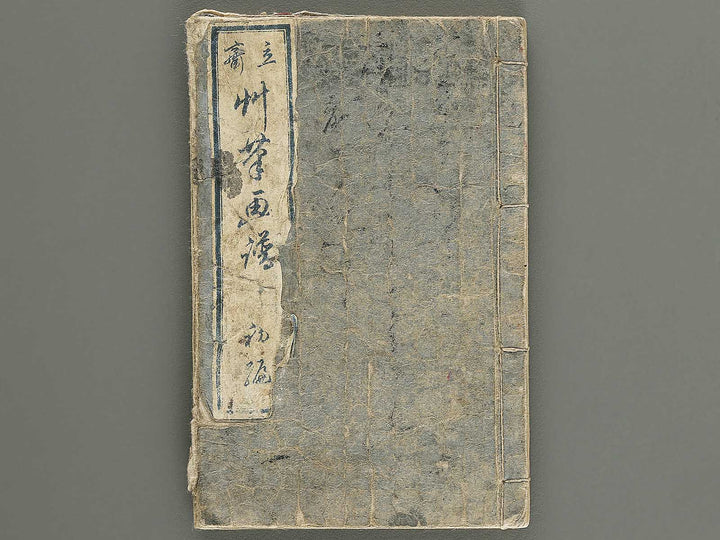 立齋
艸筆画譜
初編